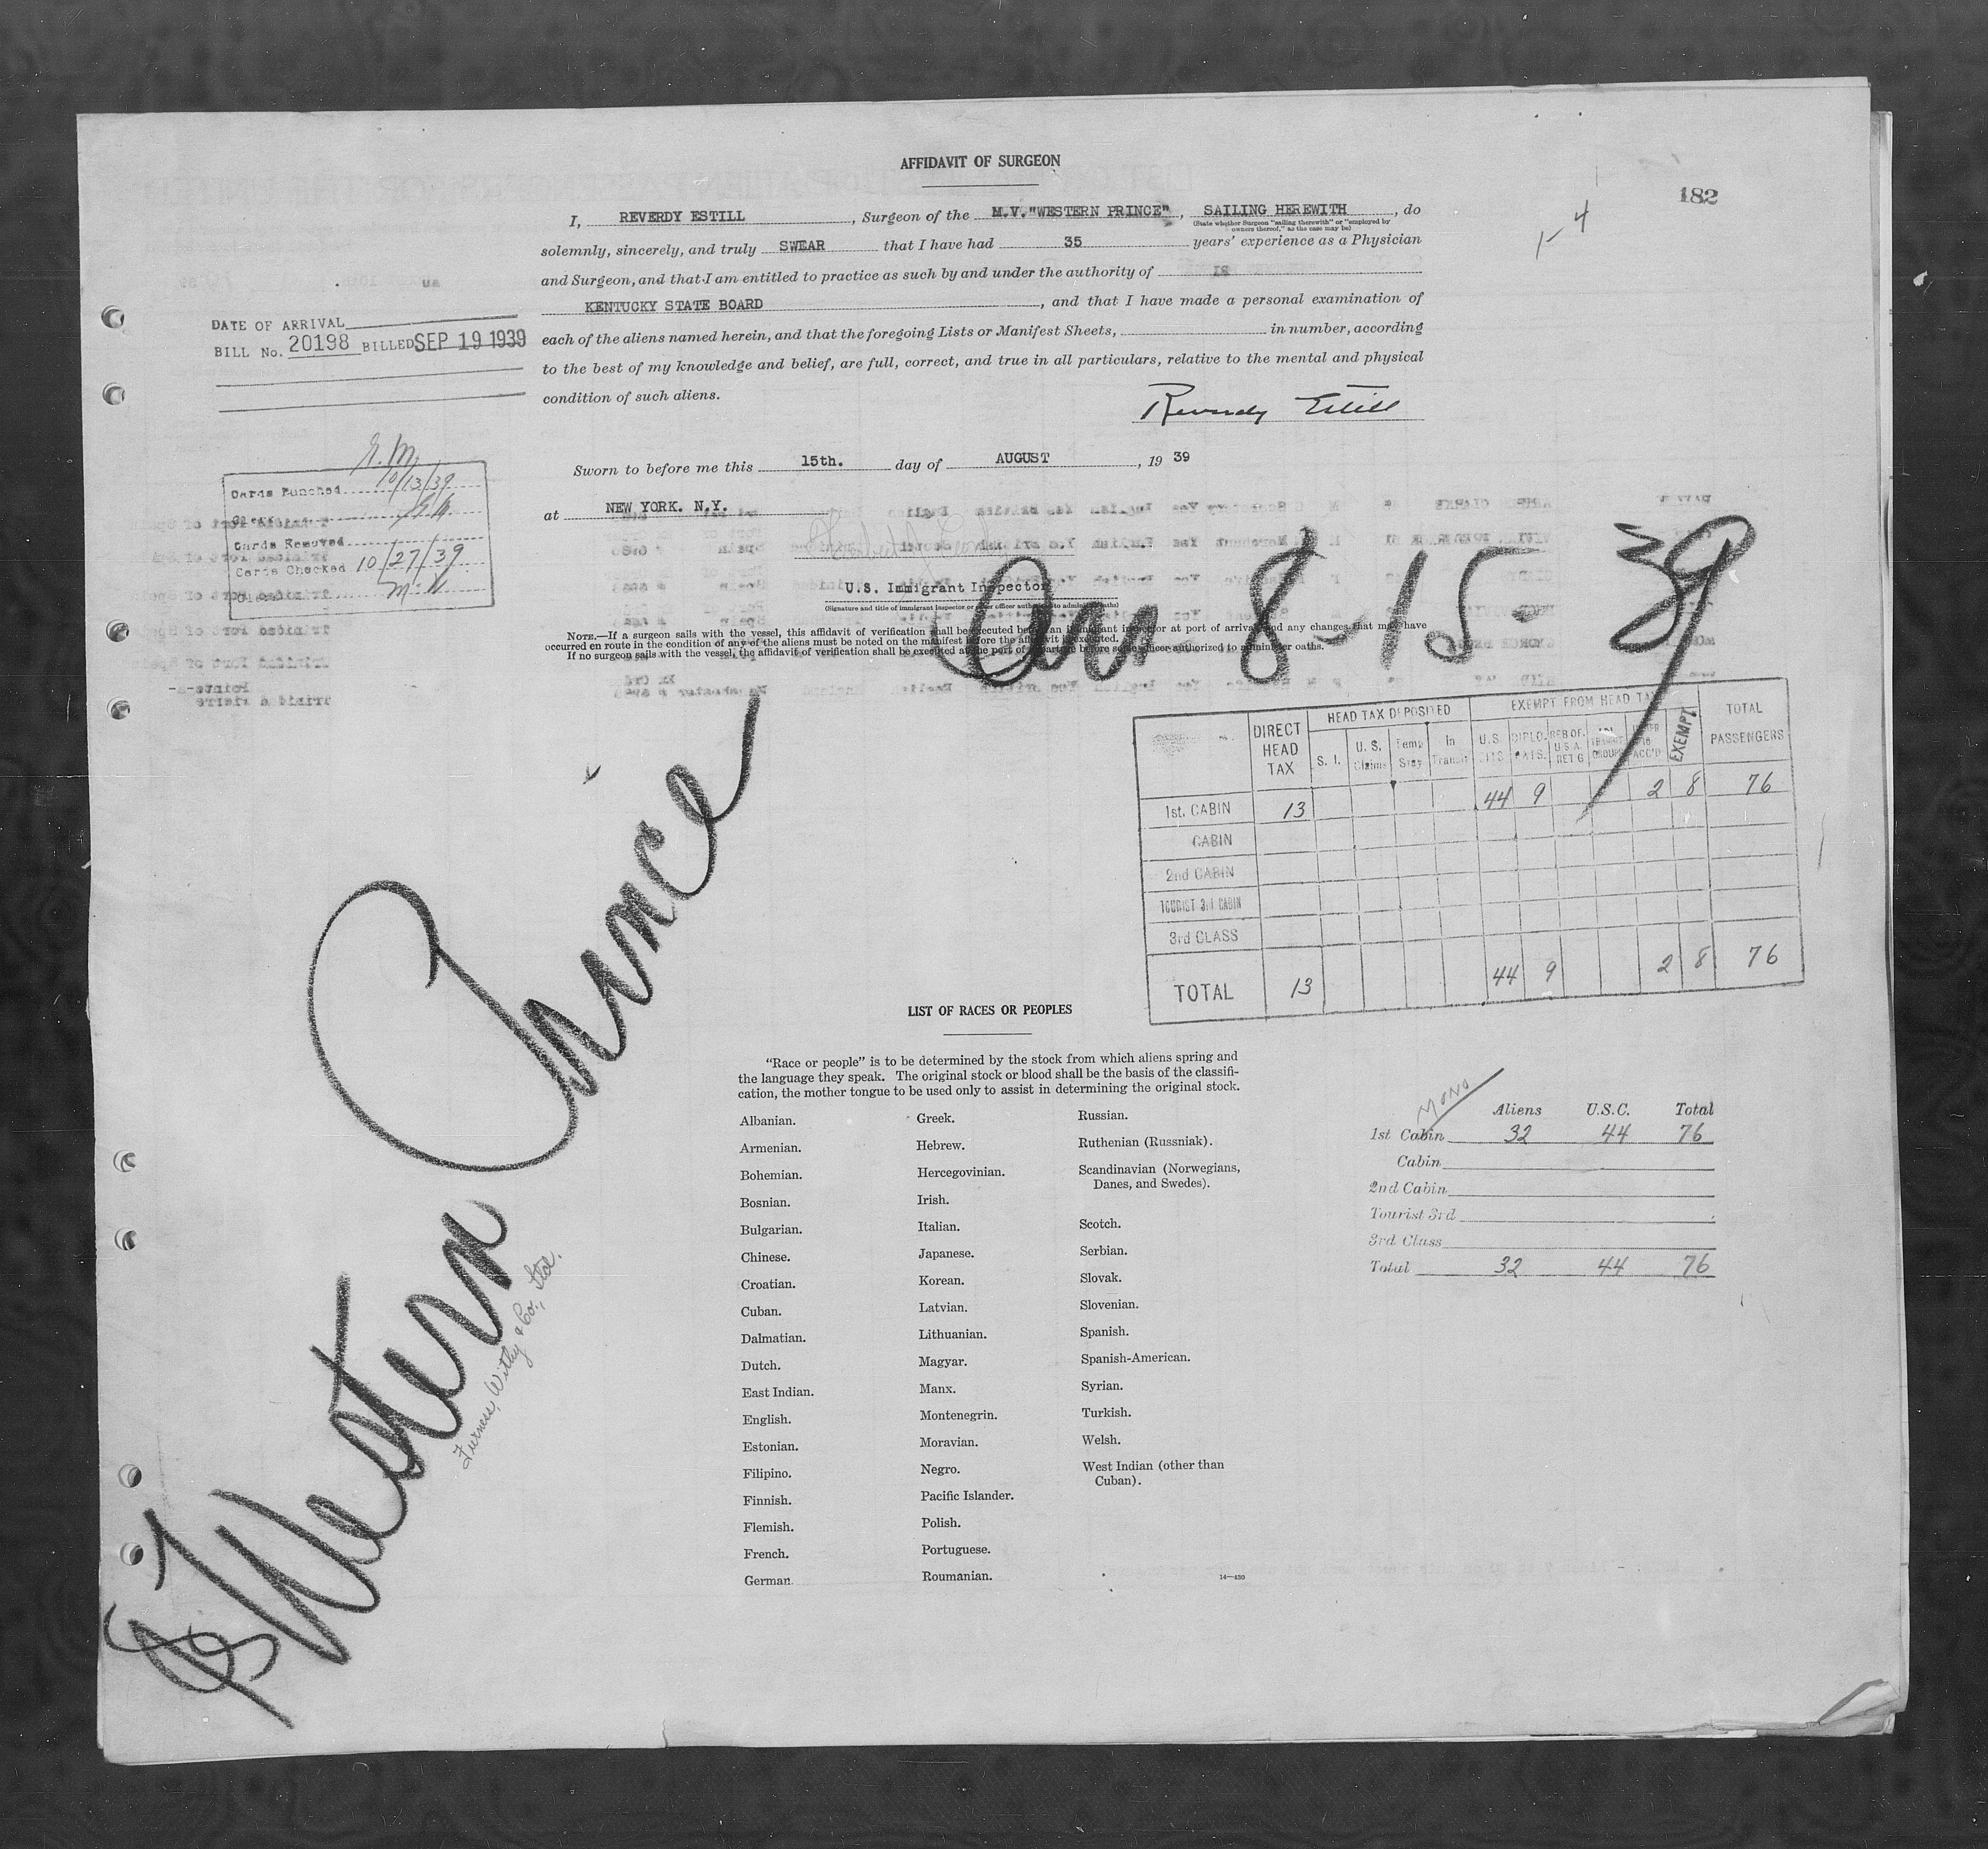 AFFIDAVIT OF SURGEON
182
1-4
I, REVERDY ESTILL, Surgeon of the M.V."WESTERN PRINCE", SAILING HEREWITH, do
(State whether Surgeon "sailing therewith" or "employed by
owners thereof," as the case may be)
solemnly, sincerely, and truly SWEAR that I have had 35 years' experience as a Physician
and Surgeon, and that I am entitled to practice as such by and under the authority of
KENTUCKY STATE BOARD, and that I have made a personal examination of
each of the aliens named herein, and that the foregoing Lists or Manifest Sheets, in number, according
to the best of my knowledge and belief, are full, correct, and true in all particulars, relative to the mental and physical
condition of such aliens.
Reverdy Estill
DATE OF ARRIVAL
BILL No. 20198 BILLED SEP 19 1939
Sworn to before me this 15th. day of AUGUST, 19 39
at NEW YORK. N.Y.
U.S. Immigrant Inspector
(Signature and title of immigrant inspector or other officer authorized to administer oaths)
NOTE.—If a surgeon sails with the vessel, this affidavit of verification shall be executed before an immigrant inspector at port of arrival and any changes that may have
occurred en route in the condition of any of the aliens must be noted on the manifest before the affidavit is executed.
If no surgeon sails with the vessel, the affidavit of verification shall be executed at the port of departure before some officer authorized to administer oaths.
Cards Punched 10/13/39
Clerk
Cards Removed
Cards Checked 10/27/39
Clerk
Arr 8-15-39
SS Western Prince
Furness, Withy & Co., Ltd.
DIRECT HEAD TAX
HEAD TAX DEPOSITED
EXEMPT FROM HEAD TAX
TOTAL PASSENGERS
S. I. U. S. Claims Temp Stay In Transit U.S. CITS DIPLO- MATS. EXEMPT
1st. CABIN 13 44 9 2 8 76
CABIN
2nd CABIN
TOURIST 3rd CABIN
3rd CLASS
TOTAL 13 44 9 2 8 76
LIST OF RACES OR PEOPLES
"Race or people" is to be determined by the stock from which aliens spring and
the language they speak. The original stock or blood shall be the basis of the classifi-
cation, the mother tongue to be used only to assist in determining the original stock.
Albanian.
Armenian.
Bohemian.
Bosnian.
Bulgarian.
Chinese.
Croatian.
Cuban.
Dalmatian.
Dutch.
East Indian.
English.
Estonian.
Filipino.
Finnish.
Flemish.
French.
German.
Greek.
Hebrew.
Hercegovinian.
Irish.
Italian.
Japanese.
Korean.
Latvian.
Lithuanian.
Magyar.
Manx.
Montenegrin.
Moravian.
Negro.
Pacific Islander.
Polish.
Portuguese.
Roumanian.
Russian.
Ruthenian (Russniak).
Scandinavian (Norwegians,
Danes, and Swedes).
Scotch.
Serbian.
Slovak.
Slovenian.
Spanish.
Spanish-American.
Syrian.
Turkish.
Welsh.
West Indian (other than
Cuban).
14—430
Aliens U.S.C. Total
1st Cabin 32 44 76
Cabin
2nd Cabin
Tourist 3rd
3rd Class
Total 32 44 76